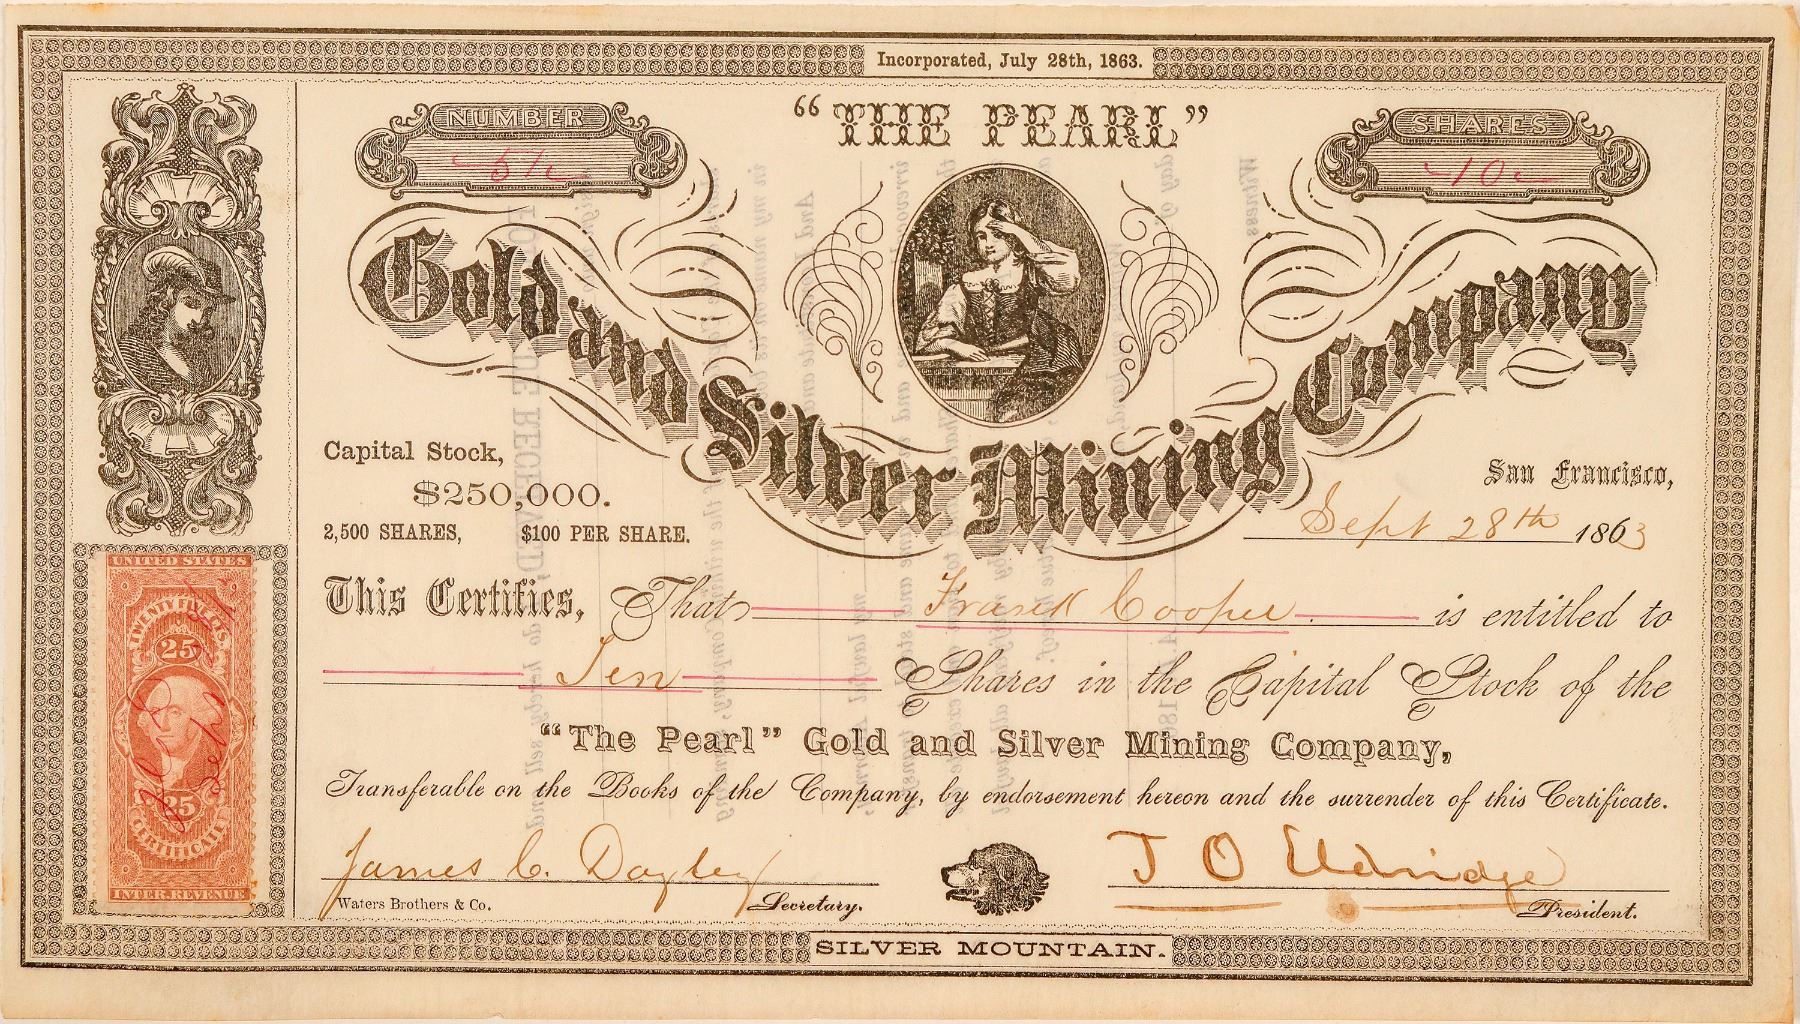 Incorporated, July 28th, 1863.
NUMBER
"THE PEARL"
SHARES
10
Gold and Silver Mining Company
Capital Stock,
$250,000.
2,500 SHARES, $100 PER SHARE.
San Francisco,
Sept 28th 1863
This Certifies, That Frank Cooper is entitled to
Ten Shares in the Capital Stock of the
"The Pearl" Gold and Silver Mining Company,
Transferable on the Books of the Company, by endorsement hereon and the surrender of this Certificate.
James C. Dayley
J O Eldridge
Waters Brothers & Co.
Secretary.
President.
SILVER MOUNTAIN.
UNITED STATES
TWENTY FIVE CTS.
25
25
CERTIFICATE
INTER. REVENUE